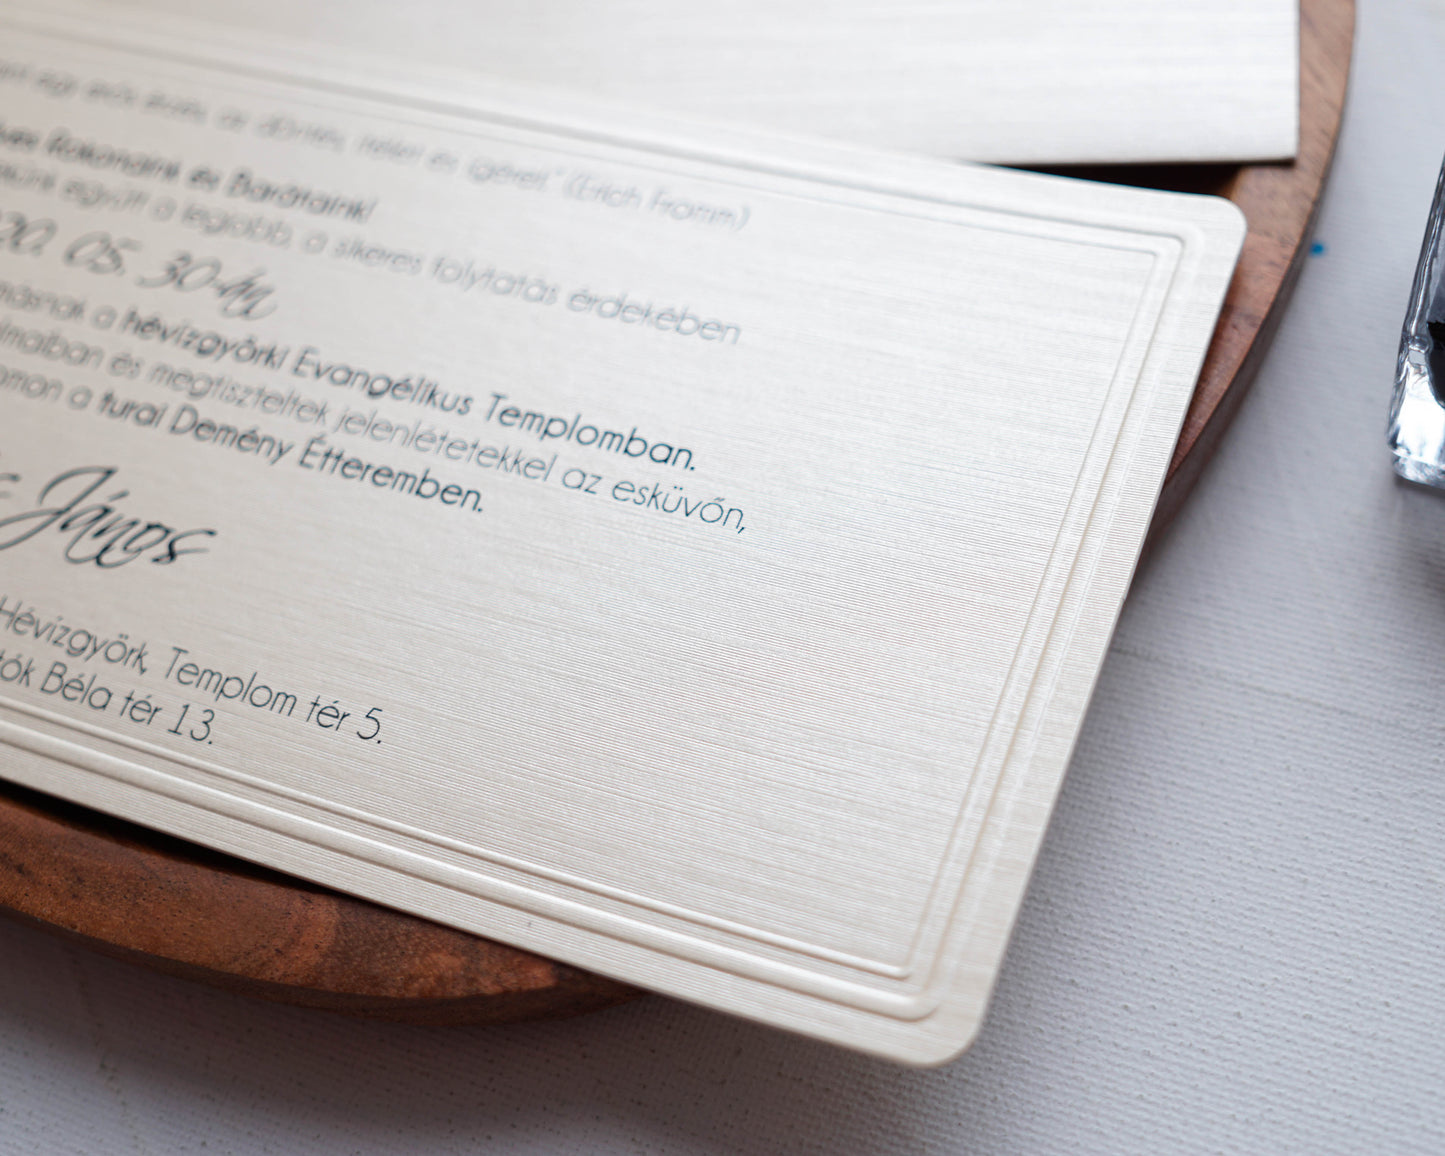 egy erős érzés, az döntés, ítélet és ígéret." (Erich Fromm)
Rokonaink és Barátaink!
együtt a legjobb, a sikeres folytatás érdekében
20. 05. 30-án
a hévízgyörki Evangélikus Templomban.
és megtiszteltek jelenlétetekkel az esküvőn,
a turai Demény Étteremben.
János
Hévízgyörk, Templom tér 5.
tók Béla tér 13.